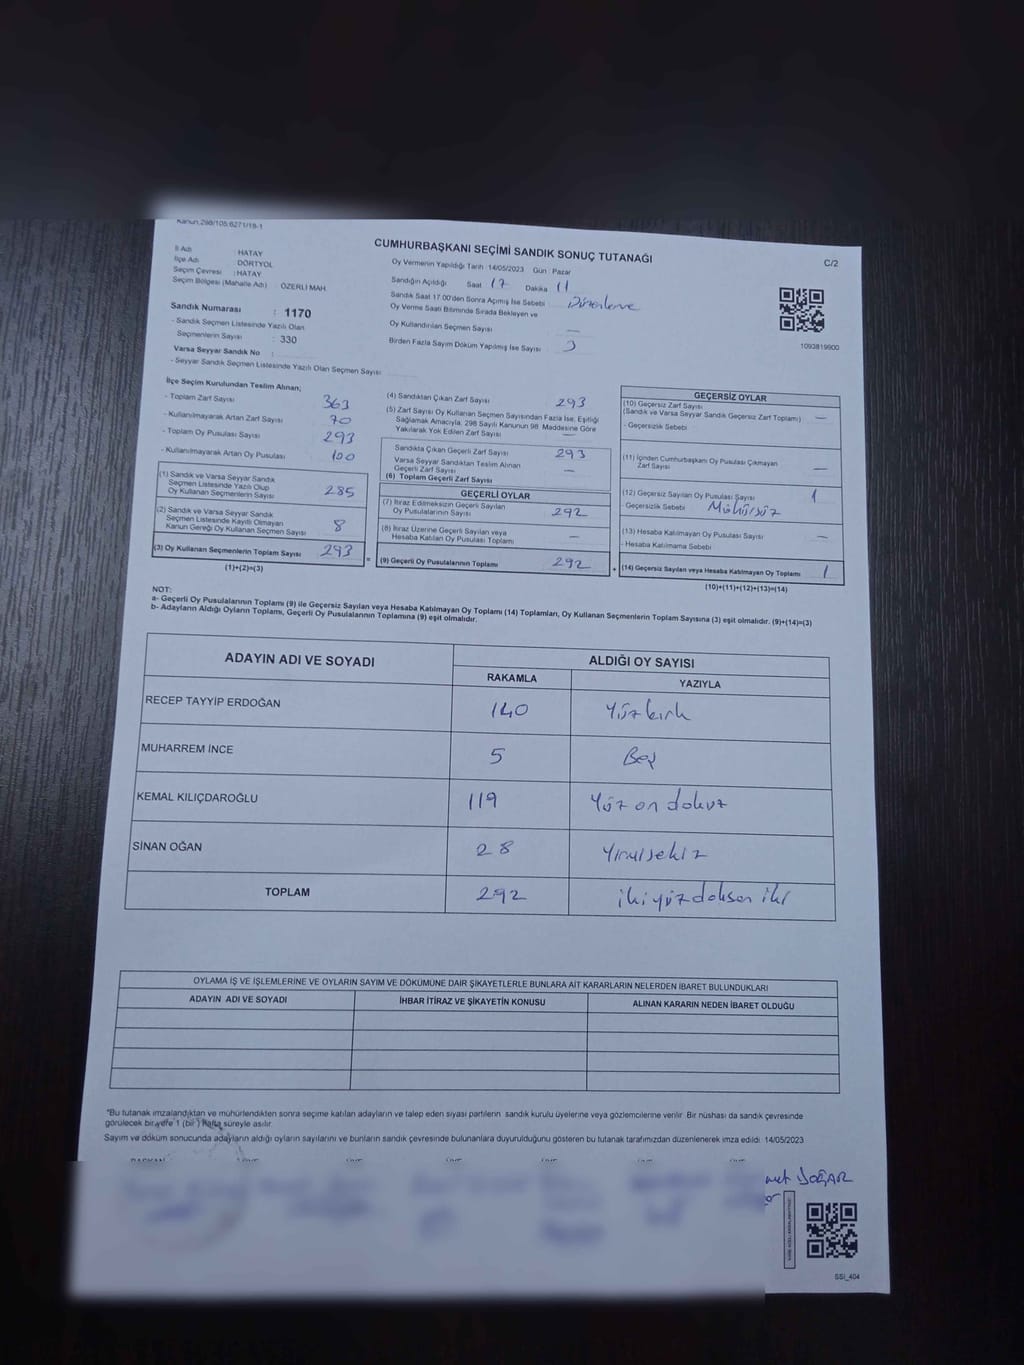 Kanun:298/105;6271/18-1
CUMHURBAŞKANI SEÇİMİ SANDIK SONUÇ TUTANAĞI
C/2
İl Adı : HATAY
İlçe Adı : DÖRTYOL
Seçim Çevresi : HATAY
Seçim Bölgesi (Mahalle Adı) : ÖZERLİ MAH.
Oy Vermenin Yapıldığı Tarih : 14/05/2023 Gün : Pazar
Sandığın Açıldığı Saat 17 Dakika 11
Sandık Saat 17.00'den Sonra Açılmış İse Sebebi Düzenleme
Oy Verme Saati Bitiminde Sırada Bekleyen ve
Oy Kullandırılan Seçmen Sayısı —
Birden Fazla Sayım Döküm Yapılmış İse Sayısı
1093819900
Sandık Numarası : 1170
- Sandık Seçmen Listesinde Yazılı Olan
Seçmenlerin Sayısı : 330
Varsa Seyyar Sandık No :
- Seyyar Sandık Seçmen Listesinde Yazılı Olan Seçmen Sayısı
İlçe Seçim Kurulundan Teslim Alınan;
- Toplam Zarf Sayısı 363
- Kullanılmayarak Artan Zarf Sayısı 70
- Toplam Oy Pusulası Sayısı 293
- Kullanılmayarak Artan Oy Pusulası 100
(1) Sandık ve Varsa Seyyar Sandık
Seçmen Listesinde Yazılı Olup
Oy Kullanan Seçmenlerin Sayısı 285
(2) Sandık ve Varsa Seyyar Sandık
Seçmen Listesinde Kayıtlı Olmayan
Kanun Gereği Oy Kullanan Seçmen Sayısı 8
(3) Oy Kullanan Seçmenlerin Toplam Sayısı 293
(1)+(2)=(3)
(4) Sandıktan Çıkan Zarf Sayısı 293
(5) Zarf Sayısı Oy Kullanan Seçmen Sayısından Fazla İse, Eşitliği
Sağlamak Amacıyla, 298 Sayılı Kanunun 98. Maddesine Göre
Yakılarak Yok Edilen Zarf Sayısı —
Sandıkta Çıkan Geçerli Zarf Sayısı 293
Varsa Seyyar Sandıktan Teslim Alınan
Geçerli Zarf Sayısı —
(6) Toplam Geçerli Zarf Sayısı
GEÇERLİ OYLAR
(7) İtiraz Edilmeksizin Geçerli Sayılan
Oy Pusulalarının Sayısı 292
(8) İtiraz Üzerine Geçerli Sayılan veya
Hesaba Katılan Oy Pusulası Toplamı —
= (9) Geçerli Oy Pusulalarının Toplamı 292
GEÇERSİZ OYLAR
(10) Geçersiz Zarf Sayısı
(Sandık ve Varsa Seyyar Sandık Geçersiz Zarf Toplamı) —
- Geçersizlik Sebebi
(11) İçinden Cumhurbaşkanı Oy Pusulası Çıkmayan
Zarf Sayısı —
(12) Geçersiz Sayılan Oy Pusulası Sayısı 1
- Geçersizlik Sebebi Mühürsüz
(13) Hesaba Katılmayan Oy Pusulası Sayısı —
- Hesaba Katılmama Sebebi
+ (14) Geçersiz Sayılan veya Hesaba Katılmayan Oy Toplamı 1
(10)+(11)+(12)+(13)=(14)
NOT:
a- Geçerli Oy Pusulalarının Toplamı (9) ile Geçersiz Sayılan veya Hesaba Katılmayan Oy Toplamı (14) Toplamları, Oy Kullanan Seçmenlerin Toplam Sayısına (3) eşit olmalıdır. (9)+(14)=(3)
b- Adayların Aldığı Oyların Toplamı, Geçerli Oy Pusulalarının Toplamına (9) eşit olmalıdır.
ADAYIN ADI VE SOYADI ALDIĞI OY SAYISI
RAKAMLA YAZIYLA
RECEP TAYYİP ERDOĞAN 140 Yüz kırk
MUHARREM İNCE 5 Beş
KEMAL KILIÇDAROĞLU 119 Yüz on dokuz
SİNAN OĞAN 28 Yirmi sekiz
TOPLAM 292 iki yüz doksan iki
OYLAMA İŞ VE İŞLEMLERİNE VE OYLARIN SAYIM VE DÖKÜMÜNE DAİR ŞİKAYETLERLE BUNLARA AİT KARARLARIN NELERDEN İBARET BULUNDUKLARI
ADAYIN ADI VE SOYADI İHBAR İTİRAZ VE ŞİKAYETİN KONUSU ALINAN KARARIN NEDEN İBARET OLDUĞU
*Bu tutanak imzalandıktan ve mühürlendikten sonra seçime katılan adayların ve talep eden siyasi partilerin sandık kurulu üyelerine veya gözlemcilerine verilir. Bir nüshası da sandık çevresinde
görülecek bir yere 1 (bir) hafta süreyle asılır.
Sayım ve döküm sonucunda adayların aldığı oyların sayılarını ve bunların sandık çevresinde bulunanlara duyurulduğunu gösteren bu tutanak tarafımızdan düzenlenerek imza edildi. 14/05/2023
DOĞAR
SSİ_404